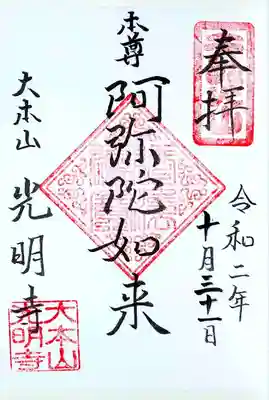 奉拝
令和二年
十月三十一日
本尊
阿弥陀如来
大本山
光明寺
大本山
光明寺